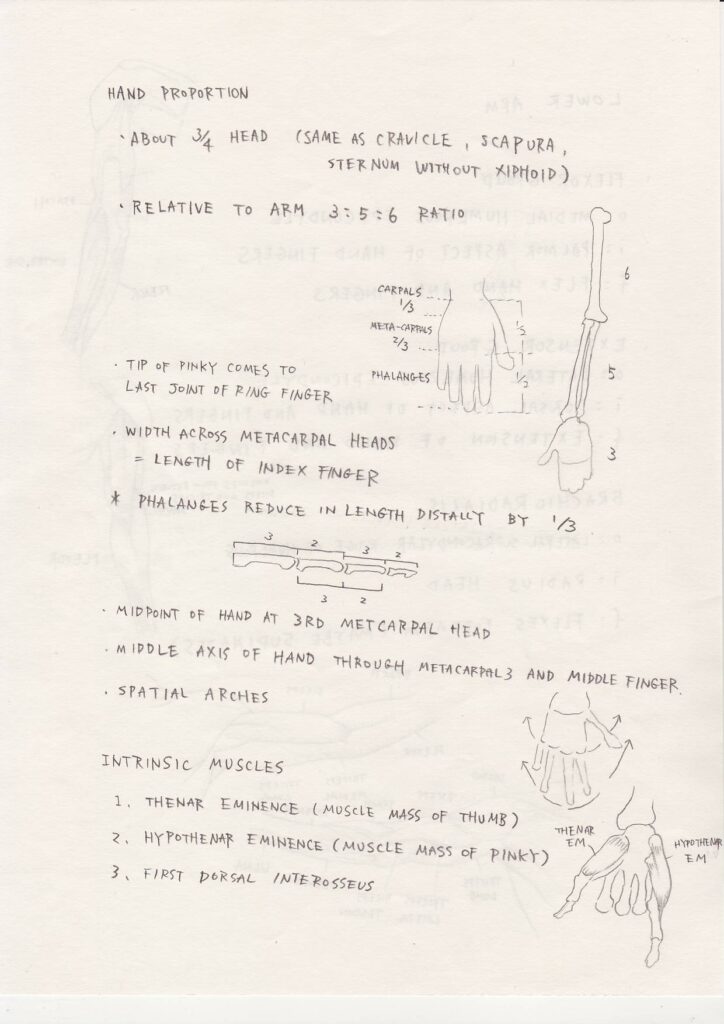 HAND PROPORTION
· ABOUT 3/4 HEAD (SAME AS CRAVICLE, SCAPURA,
STERNUM WITHOUT XIPHOID)
· RELATIVE TO ARM 3:5:6 RATIO
6
5
3
CARPALS
1/3
META-CARPALS
2/3
PHALANGES
1/2
1/2
· TIP OF PINKY COMES TO
LAST JOINT OF RING FINGER
· WIDTH ACROSS METACARPAL HEADS
= LENGTH OF INDEX FINGER
* PHALANGES REDUCE IN LENGTH DISTALLY BY 1/3
3 2 3 2
3 2
· MIDPOINT OF HAND AT 3RD METCARPAL HEAD
· MIDDLE AXIS OF HAND THROUGH METACARPAL 3 AND MIDDLE FINGER.
· SPATIAL ARCHES
INTRINSIC MUSCLES
1. THENAR EMINENCE (MUSCLE MASS OF THUMB)
2. HYPOTHENAR EMINENCE (MUSCLE MASS OF PINKY)
3. FIRST DORSAL INTEROSSEUS
THENAR
EM
HYPOTHENAR
EM